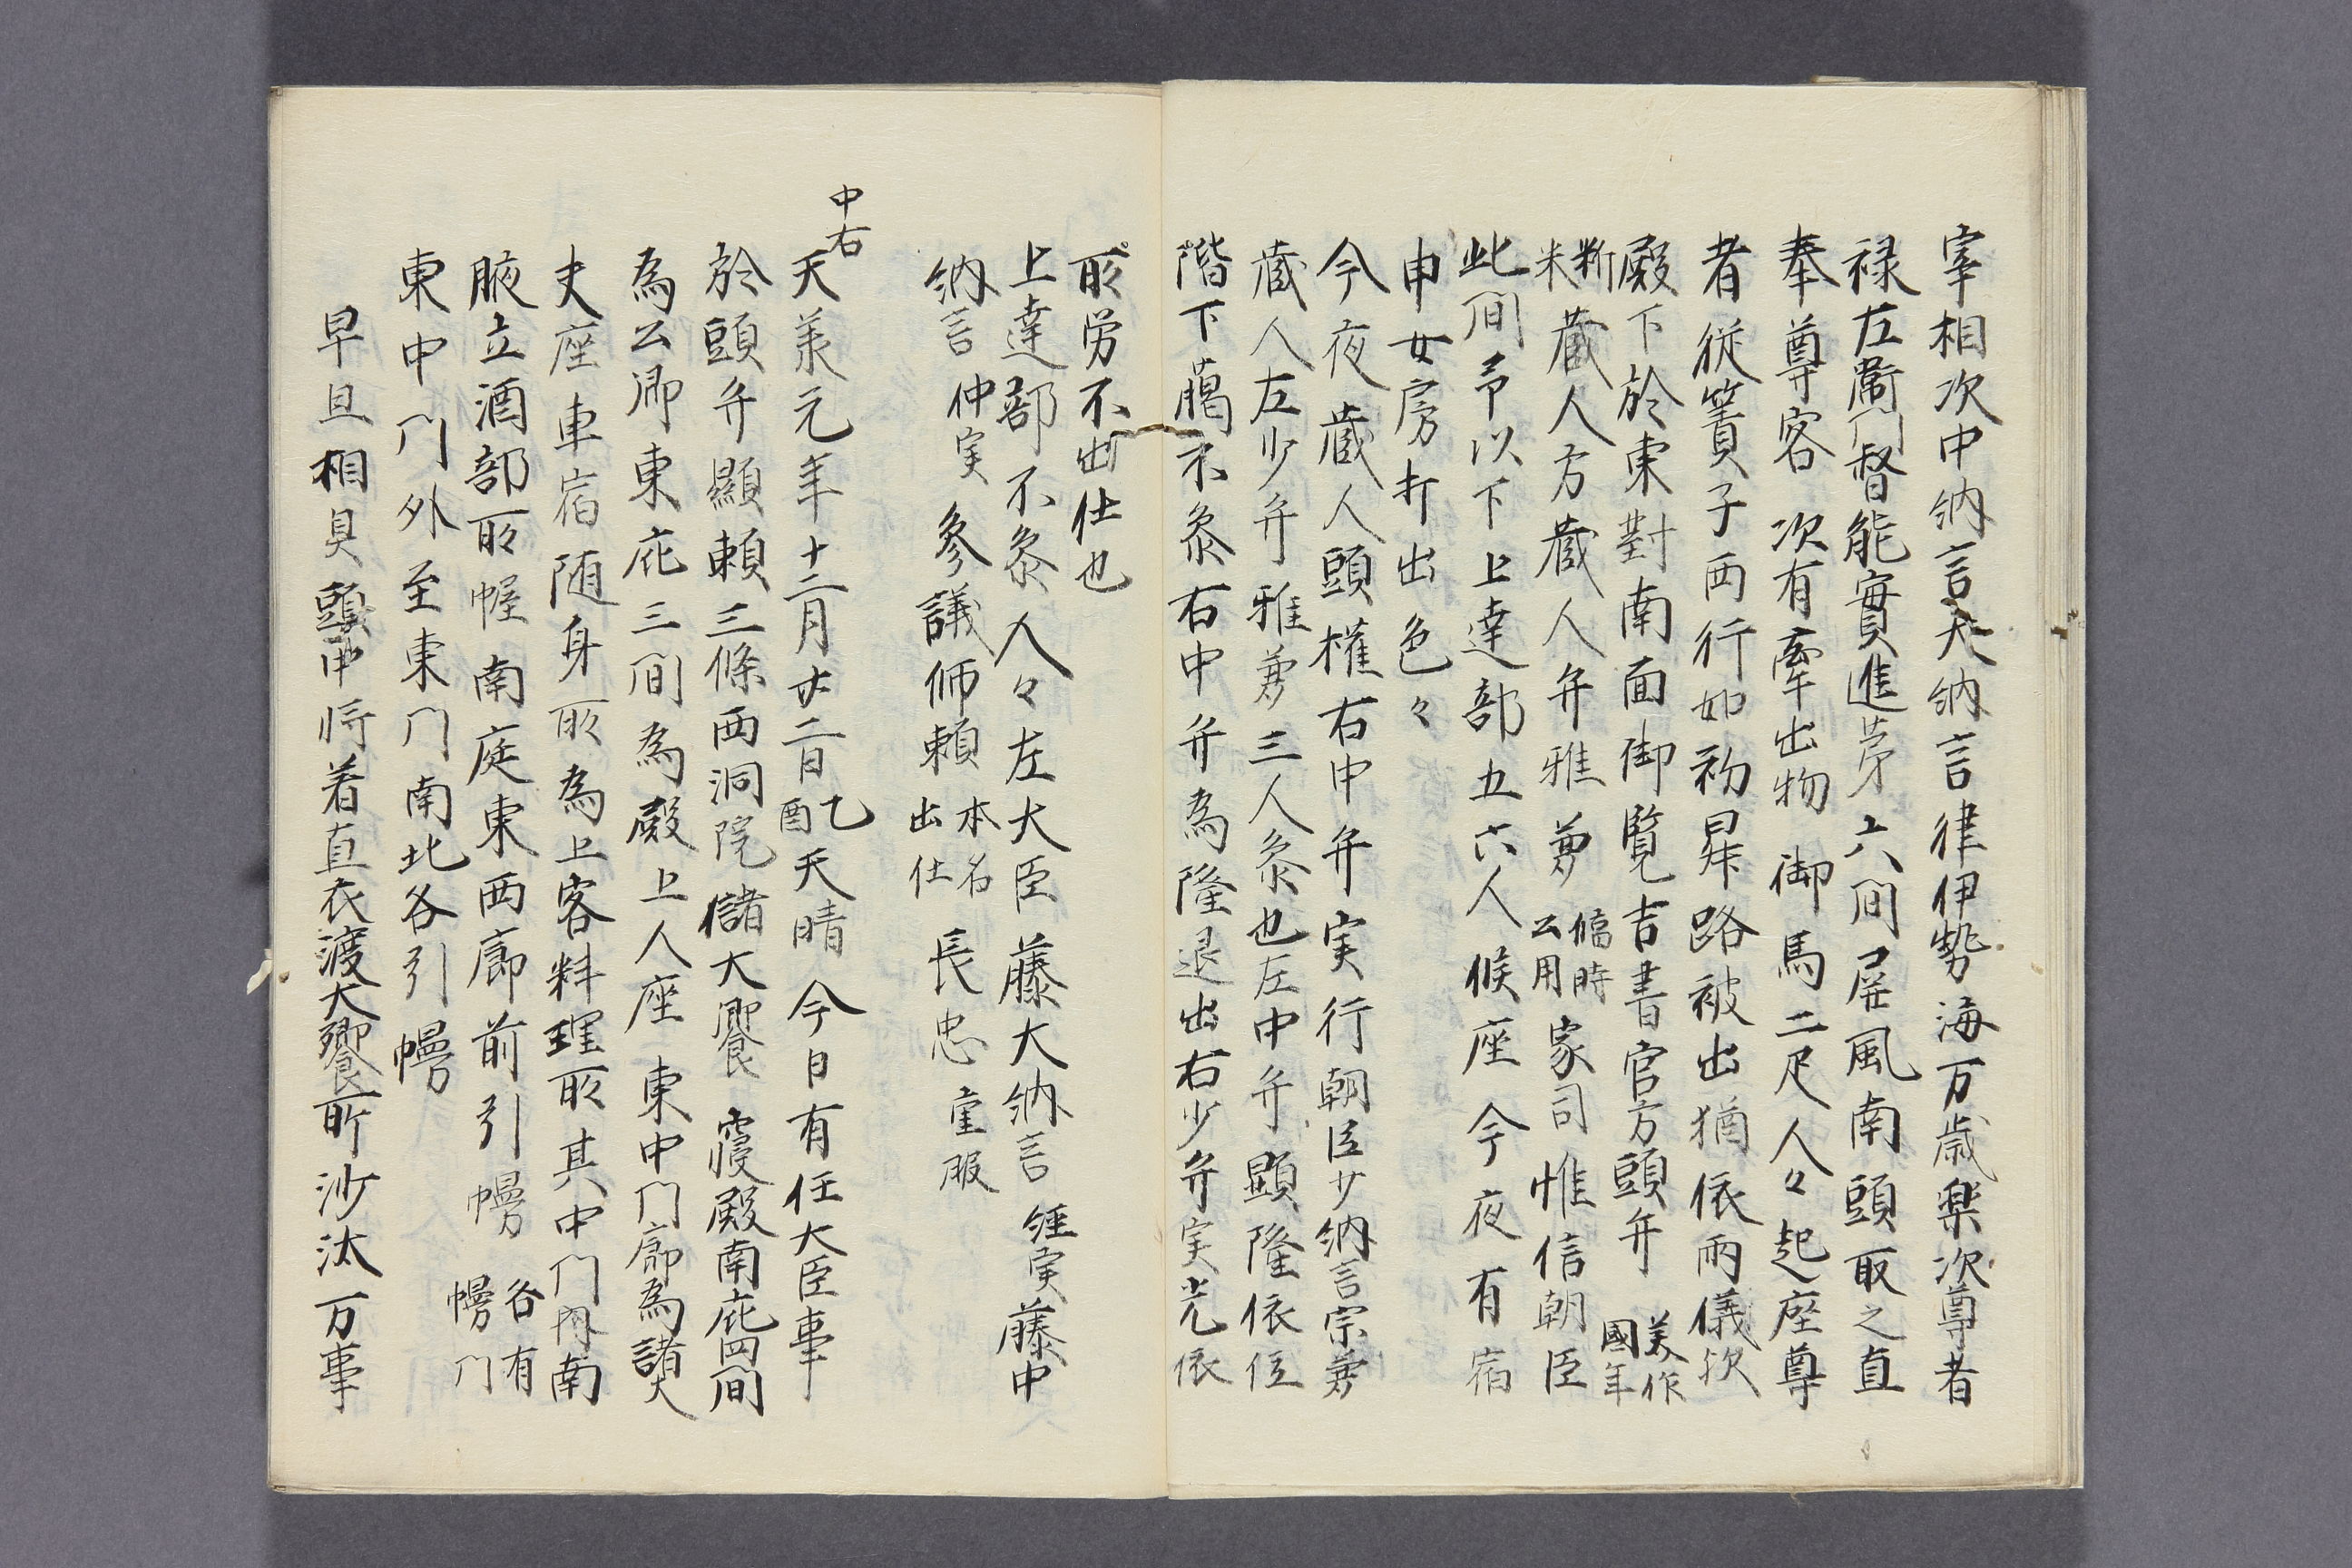 宰相次中納言大納言律伊勢海万歳楽次尊者
禄左衛門督能實進苐六间屏風南頭取之直
奉尊客次有牽出物御馬二疋人々起座尊
者従簀子西行如初昇路被出猶依雨儀次
殿下於東對南面御覧吉書官方頭弁美作國年
断米蔵人方蔵人弁雅兼脩時公用家司惟信朝臣
此间予以下上達部五六人候座今夜有宿
申女房打出色々
今夜蔵人頭権右中弁実行朝臣少納言宗兼
蔵人左少弁雅兼三人叅也左中弁顕隆依位
階下﨟不叅右中弁為隆退出右少弁実光依
所労不出仕也
上達部不叅人々左大臣藤大納言経実藤中
納言仲実参議師頼本名出仕長忠重服
中右
天羕元年十二月廿二日乙酉天晴今日有任大臣事
於頭弁顯頼三條西洞院儲大饗寝殿南庇四间
為公卿東庇三间為殿上人座東中門廊為諸大
夫座車宿随身所為上客料理所其中門内南
腋立酒部所幄南庭東西廊前引幔各有幔門
東中門外至東門南北各引幔
早旦相具頭中将着直衣渡大饗所沙汰万事